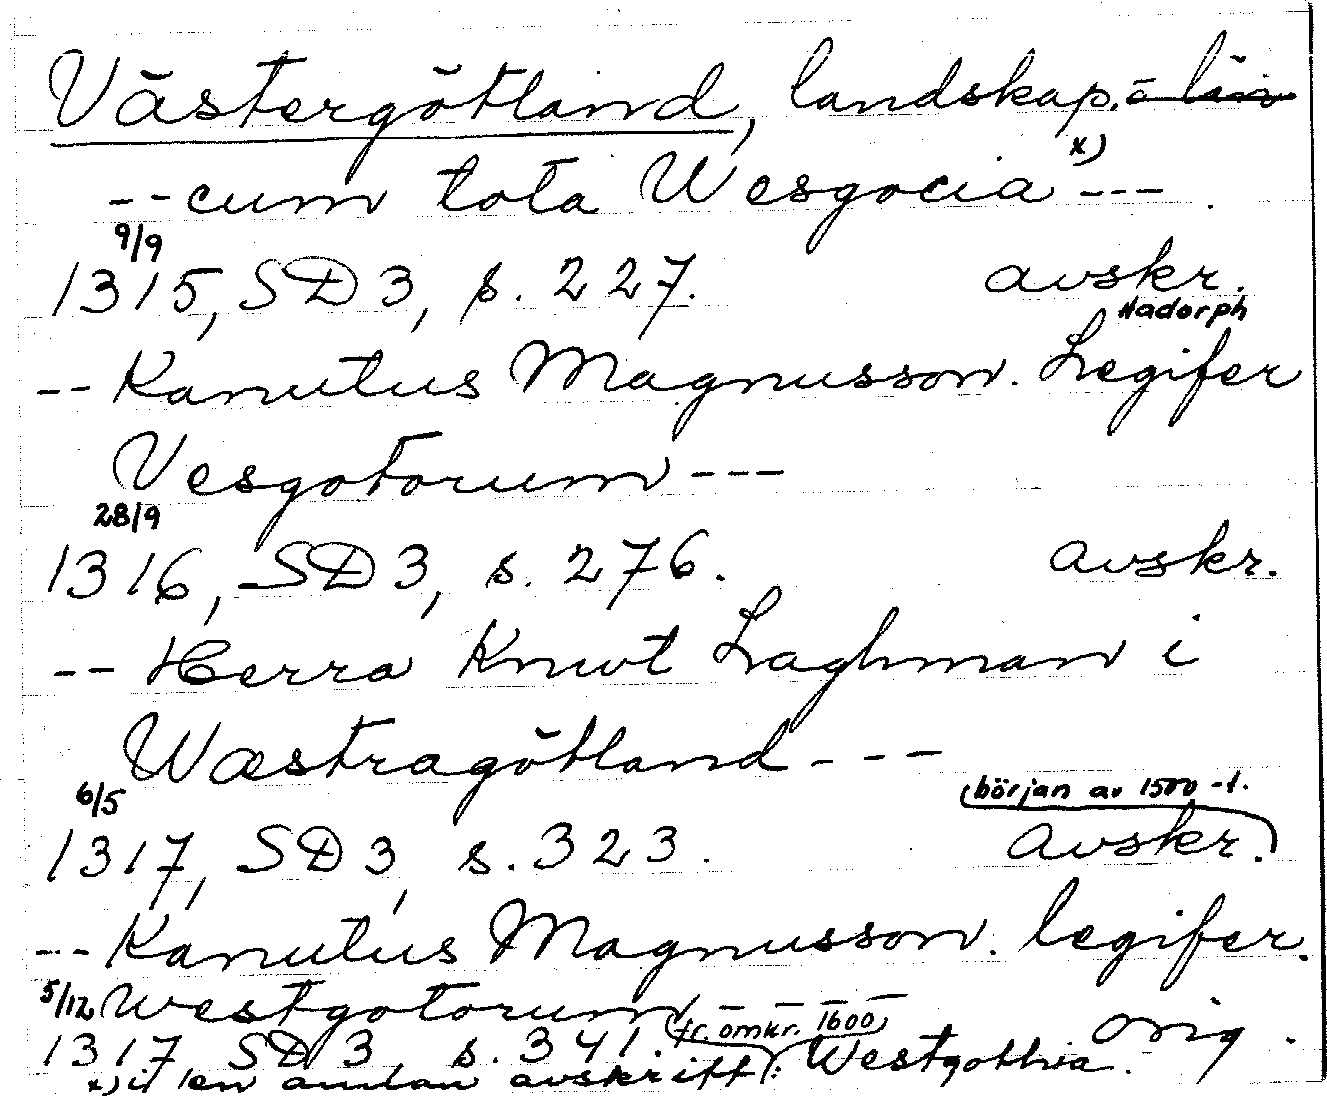 Västergötland, landskap. o län
-- cum tota Wesgocia x) ---
9/9
1315, SD 3, s. 227. avskr.
Hadorph
-- Kanutus Magnusson. Legifer
Vesgotorum ---
28/9
1316, SD 3, s. 276. avskr.
-- Herra Knwt Laghman i
Wæstragötland - - -
6/5 (början av 1500-t.
1317, SD 3, s. 323. avskr.)
--- Kanutus Magnusson. legifer.
Westgotorum - - - -
5/12 (fr. omkr. 1600)
1317, SD 3, s. 341. orig.
x) i en annan avskrift: Westgothia.